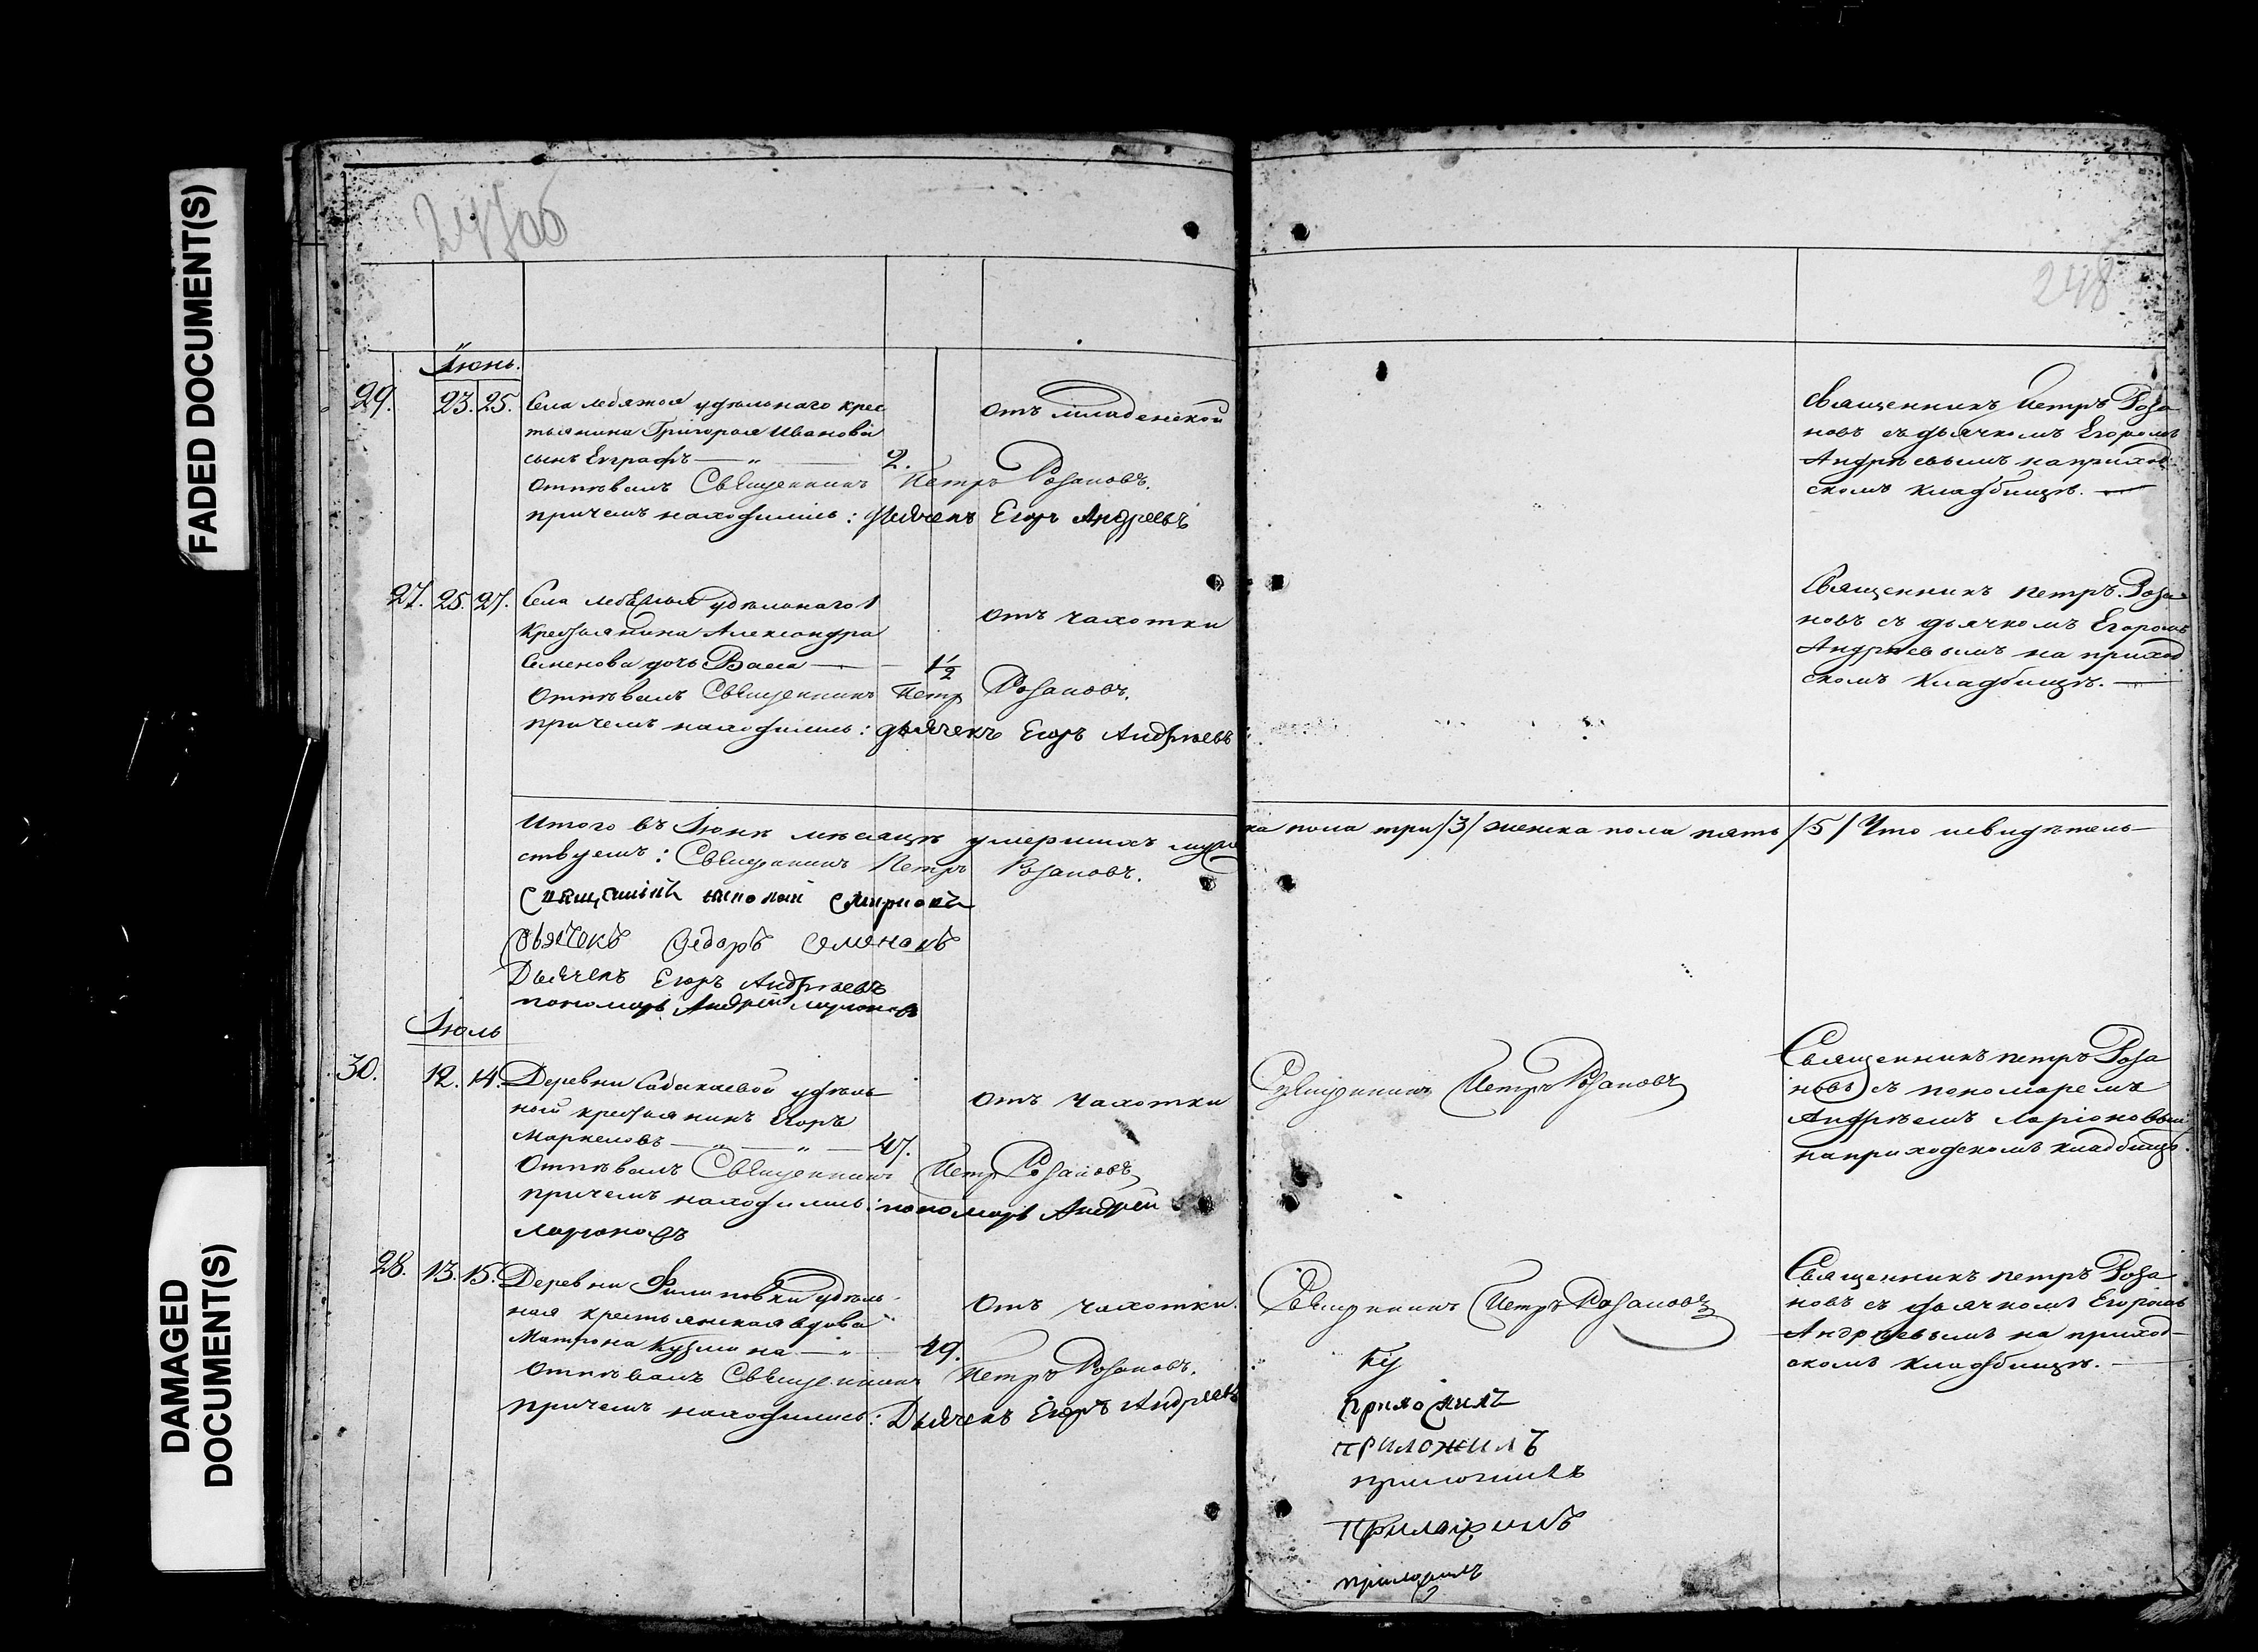 FADED DOCUMENT(S)
DAMAGED
DOCUMENT(S)
248
Іюнь.
29. 23. 25. Села Лебяжья удѣльнаго крес
тьянина Григорья Иванова
сынъ Евграфъ 2.
отъ младенской
Отпѣвалъ Священникъ Петръ Розановъ.
причемъ находились: дьячекъ Егоръ Андреевъ
Священникъ Петръ Роза
новъ съ дьячкомъ Егоромъ
Андреевымъ на приход
скомъ кладбищѣ.
27. 25. 27. Села Лебяжья удѣльнаго
крестьянина Александра
Семенова дочь 1 1/2
отъ чахотки
Отпѣвалъ Священникъ Петръ Розановъ.
причемъ находились: дьячекъ Егоръ Андреевъ
Священникъ Петръ Роза
новъ съ дьячкомъ Егоромъ
Андреевымъ на приход
скомъ кладбищѣ.
Итого въ Іюнѣ мѣсяцѣ умершихъ муж
ка пола три /3/ женска пола пять /5/ Что свидѣтель
ствуемъ: Священникъ Петръ Розановъ.
Священникъ Смирновъ
Дьячекъ Ѳедоръ Семеновъ
Дьячекъ Егоръ Андреевъ
пономарь Андрей Ларіоновъ
Іюль
30. 12. 14. Деревни Собакаевой удѣль
ной крестьянинъ Егоръ
Маркеловъ 47.
отъ чахотки
Отпѣвалъ Священникъ Петръ Розановъ
причемъ находились: пономарь Андрей
Ларіоновъ
Священникъ Петръ Розановъ
Священникъ Петръ Роза
новъ съ пономаремъ
Андреемъ Ларіоновымъ
на приходскомъ кладбищѣ.
28. 13. 15. Деревни Филиповки удѣль
ная крестьянская вдова
Матрона Кузмина 49.
отъ чахотки.
Отпѣвалъ Священникъ Петръ Розановъ.
причемъ находились: Дьячекъ Егоръ Андреевъ
Священникъ Петръ Розановъ
Священникъ Петръ Роза
новъ съ дьячкомъ Егоромъ
Андреевымъ на приход
скомъ кладбищѣ.
ку
приложилъ
приложилъ
приложилъ
приложилъ
приложилъ